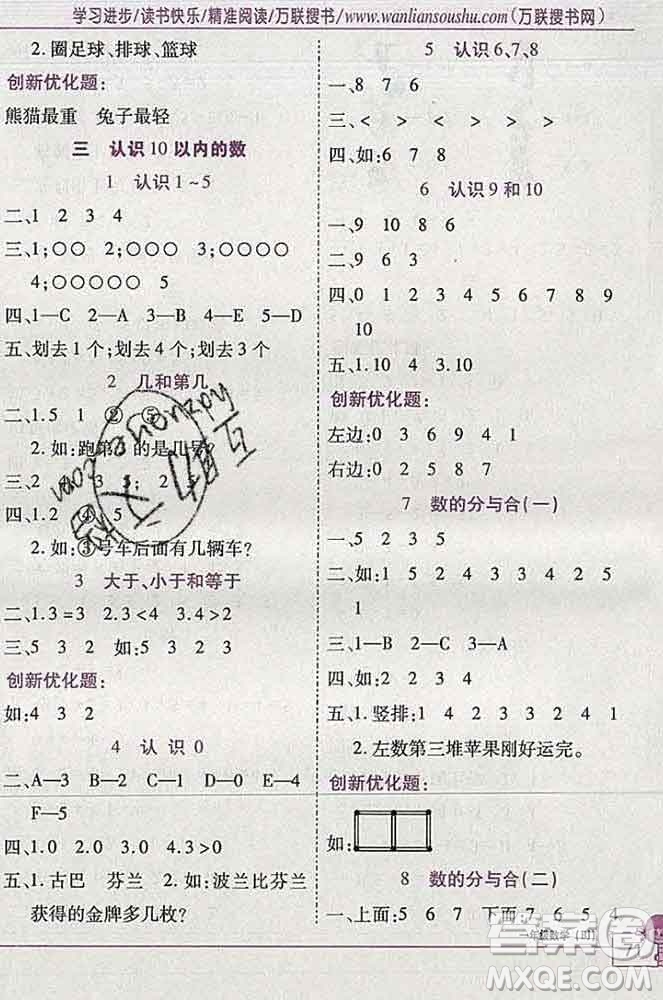 学习进步/读书快乐/精准阅读/万联搜书/www.wanliansoushu.com(万联搜书网)
2.圈足球、排球、篮球
创新优化题:
熊猫最重　兔子最轻
三　认识10以内的数
1　认识1~5
二、1　2　3　4
三、1;○○　2;○○○　3;○○○○
4;○○○○○
四、1—C　2—A　3—B　4—E　5—D
五、划去1个;划去4个;划去3个
2　几和第几
二、1.5　1　②　⑤
2.如:跑第　的是几号?
三、2　　3　3;　2
四、1.2　④　5
2.如:③号车后面有几辆车?
3　大于、小于和等于
二、1.3=3　2.3<4　3.4>2
三、5　3　2　如:5　3　2　3
创新优化题:
如:4　3　2
4　认识0
二、A—3　B—4　C—1　D—0　E—2
F—5
四、1.0　2.0　4.3>0
五、1.古巴　芬兰　2.如:波兰比芬兰
获得的金牌多几枚?
5　认识6、7、8
一、8　7　6
三、<　>　<　>　<　>
四、如:6　7　8
6　认识9和10
一、9　10　8　6
二、9　6　3
四、0　1　2　3　4　5　6　7　8　9
10
五、1.10　4　3.10
创新优化题:
左边:0　3　6　9　4　1
右边:0　2　5
7　数的分与合(一)
一、5　2　3　5
二、如:1　5　1　3　4　2　2　5
1
三、1—B　2—C　3—A
四、如:1　5
五、1.竖排:1　4　2　3　3　2　4　1
2.左数第三堆苹果刚好运完。
创新优化题:
如:
8　数的分与合(二)
一、上面:5　6　7　下面:7　6　5　4
一年级数学
答案圈
MXQE.COM